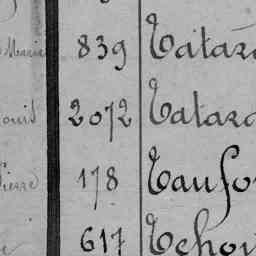 Marie 839 Tatar
ouis 2072 Tatar
Pierre 178 Taufo
617 Tehou